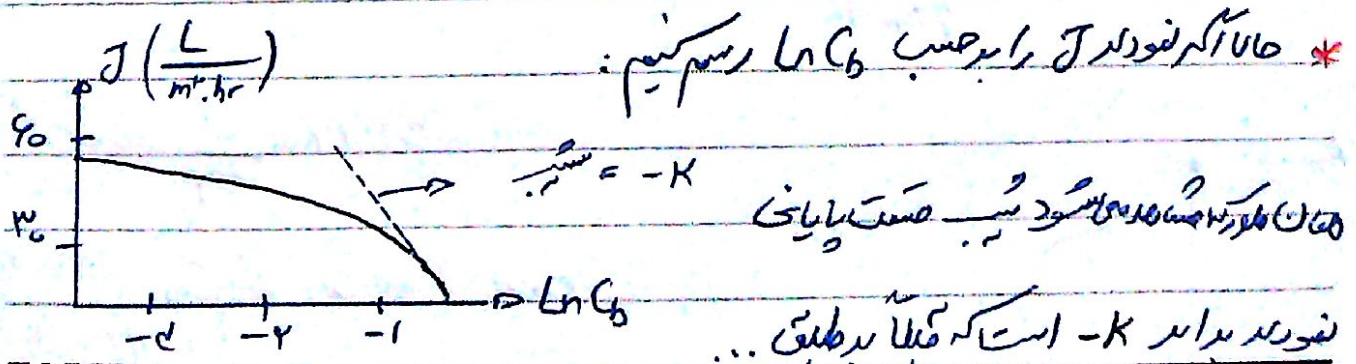 * حالا اگر نمودار J را برحسب Ln Cb رسم کنیم:
J (L/m².hr)
۶۰
شیب = -K
همان طور که مشاهده می‌شود شیب قسمت پایانی
۳۰
Ln Cb
-۳ -۲ -۱
نمودار برابر -K است که قبلاً بر طبق ...